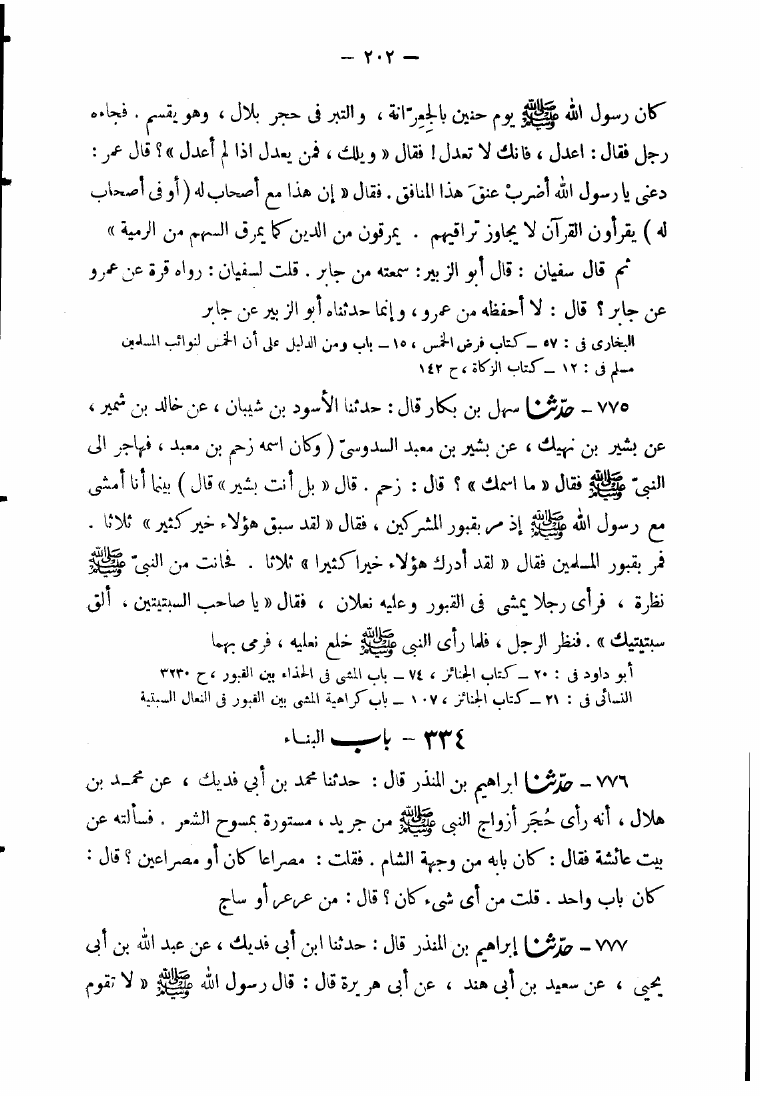 — ٢٠٢ —
كان رسول الله ﷺ يوم حنين بالجِعِرّانة ، والتبر فى حجر بلال ، وهو يقسم . فجاءه
رجل فقال : اعدل ، فانك لا تعدل ! فقال « ويلك ، فمن يعدل اذا لم أعدل » ؟ قال عمر :
دعنى يا رسول الله أضربْ عنقَ هذا المنافق . فقال « إن هذا مع أصحاب له ( أو فى أصحاب
له ) يقرأون القرآن لا يجاوز تراقيهم . يمرقون من الدين كما يمرق السهم من الرمية »
ثم قال سفيان : قال أبو الزبير : سمعته من جابر . قلت لسفيان : رواه قرة عن عمرو
عن جابر ؟ قال : لا أحفظه من عمرو ، وإنما حدثناه أبو الزبير عن جابر
البخارى فى : ٥٧ – كتاب فرض الخمس ، ١٥ – باب ومن الدليل على أن الخمس لنوائب المسلمين
مسلم فى : ١٢ – كتاب الزكاة ، ح ١٤٢
٧٧٥ – حدّثنا سهل بن بكار قال : حدثنا الأسود بن شيبان ، عن خالد بن شمير ،
عن بشير بن نهيك ، عن بشير بن معبد السدوسىّ ( وكان اسمه زحم بن معبد ، فهاجر الى
النبىّ ﷺ فقال « ما اسمك » ؟ قال : زحم . قال « بل أنت بشير » قال ) بينما أنا أمشى
مع رسول الله ﷺ إذ مر بقبور المشركين ، فقال « لقد سبق هؤلاء خير كثير » ثلاثا .
فمر بقبور المسلمين فقال « لقد أدرك هؤلاء خيرا كثيرا » ثلاثا . فحانت من النبىّ ﷺ
نظرة ، فرأى رجلا يمشى فى القبور وعليه نعلان ، فقال « يا صاحب السبتيتين ، ألق
سبتيتيك » . فنظر الرجل ، فلما رأى النبى ﷺ خلع نعليه ، فرمى بهما
أبو داود فى : ٢٠ – كتاب الجنائز ، ٧٤ – باب المشى فى الحذاء بين القبور ، ح ٣٢٣٠
النسائى فى : ٢١ – كتاب الجنائز ، ١٠٧ – باب كراهية المشى بين القبور فى النعال السبتية
٣٣٤ – باب البناء
٧٧٦ – حدّثنا ابراهيم بن المنذر قال : حدثنا محمد بن أبي فديك ، عن محمد بن
هلال ، أنه رأى حُجَر أزواج النبى ﷺ من جريد ، مستورة بمسوح الشعر . فسألته عن
بيت عائشة فقال : كان بابه من وجهة الشام . فقلت : مصراعا كان أو مصراعين ؟ قال :
كان باب واحد . قلت من أى شىء كان ؟ قال : من عرعر أو ساج
٧٧٧ – حدّثنا إبراهيم بن المنذر قال : حدثنا ابن أبى فديك ، عن عبد الله بن أبى
يحيى ، عن سعيد بن أبى هند ، عن أبى هريرة قال : قال رسول الله ﷺ « لا تقوم